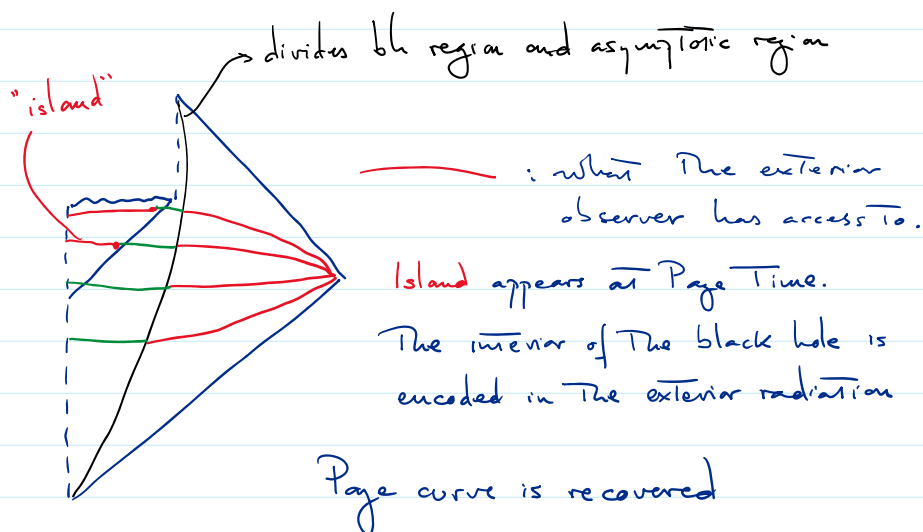 divides bh region and asymptotic region
"island"
: what The exterior
observer has access To.
Island appears at Page Time.
The interior of The black hole is
encoded in The exterior radiation
Page curve is recovered